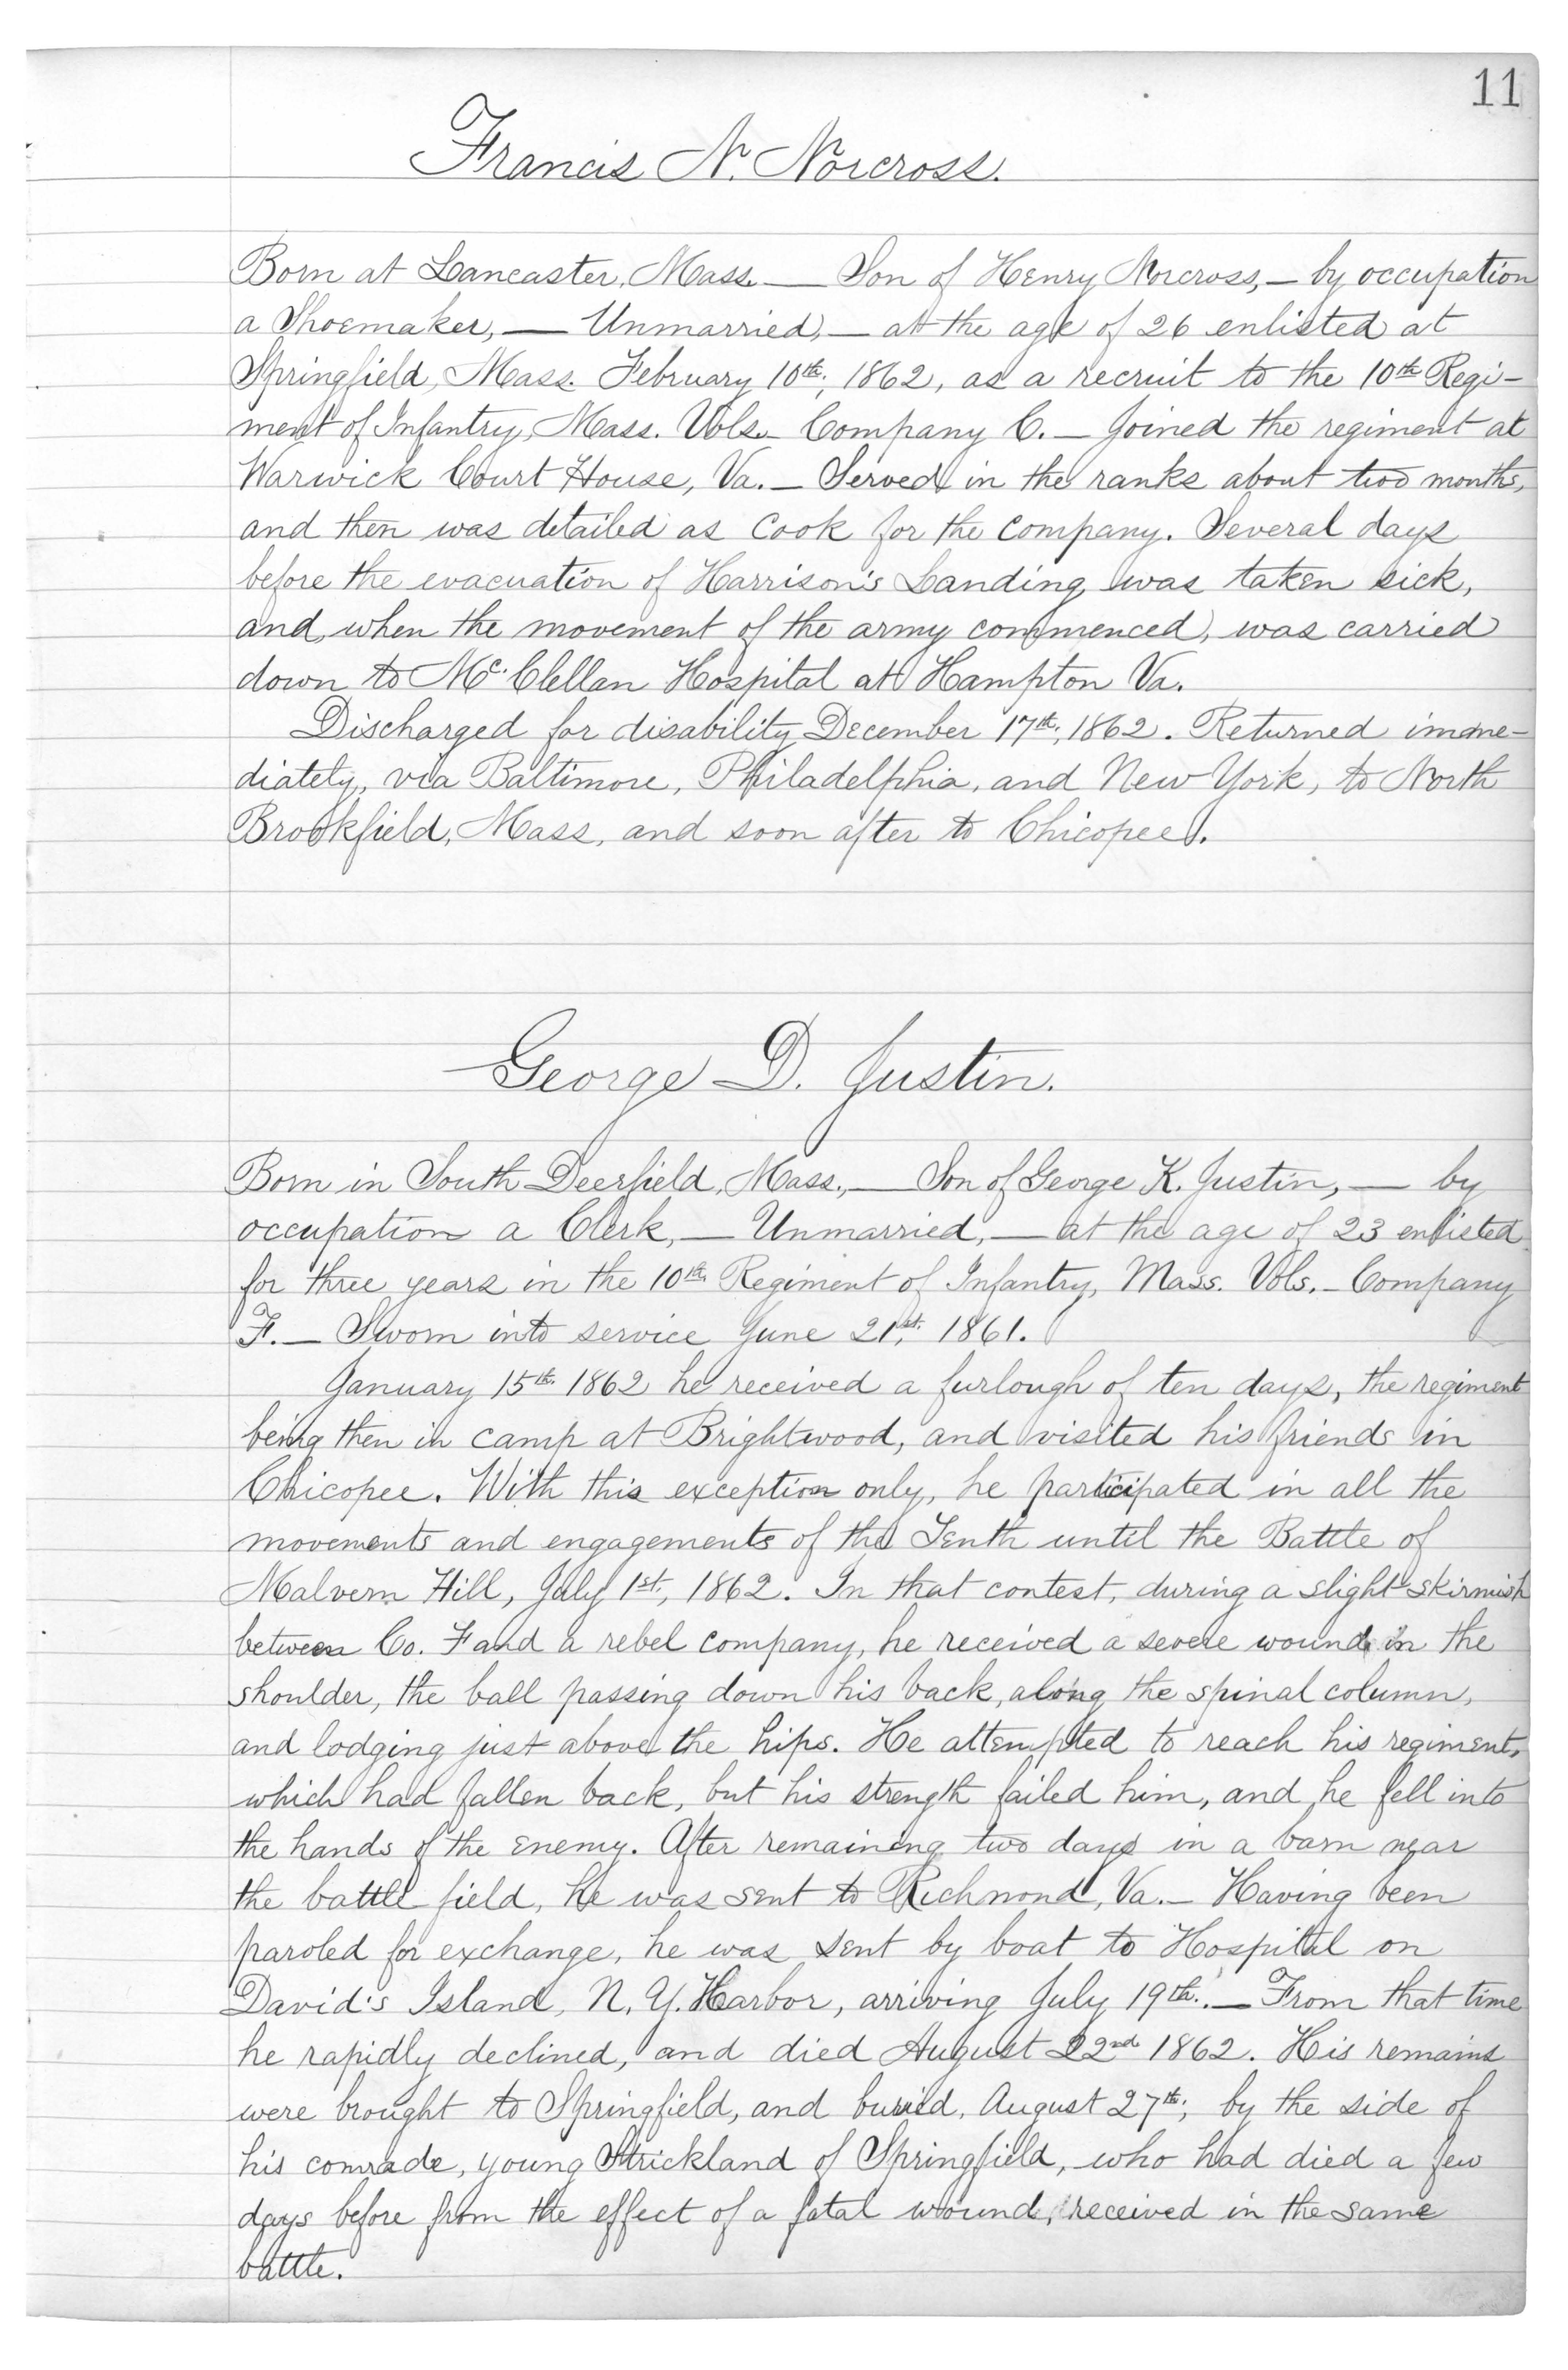 11
Francis N. Norcross.
Born at Lancaster, Mass. — Son of Henry Norcross, — by occupation
a Shoemaker, — Unmarried, — at the age of 26 enlisted at
Springfield, Mass. February 10th, 1862, as a recruit to the 10th Regi-
ment of Infantry, Mass. Vols. Company C. — Joined the regiment at
Warwick Court House, Va. — Served in the ranks about two months,
and then was detailed as Cook for the Company. Several days
before the evacuation of Harrison's Landing was taken sick,
and, when the movement of the army commenced, was carried
down to Mc.Clellan Hospital at Hampton Va.
Discharged for disability December 17th, 1862. Returned imme-
diately, via Baltimore, Philadelphia, and New York, to North
Brookfield, Mass, and soon after to Chicopee.
George D. Justin.
Born in South Deerfield, Mass., — Son of George K. Justin, — by
occupation a Clerk, — Unmarried, — at the age of 23 enlisted
for three years in the 10th Regiment of Infantry, Mass. Vols. — Company
F. — Sworn into service June 21st, 1861.
January 15th 1862 he received a furlough of ten days, the regiment
being then in camp at Brightwood, and visited his friends in
Chicopee. With this exception only, he participated in all the
movements and engagements of the Tenth until the Battle of
Malvern Hill, July 1st, 1862. In that contest, during a slight skirmish
between Co. F and a rebel company, he received a severe wound in the
shoulder, the ball passing down his back, along the spinal column,
and lodging just above the hips. He attempted to reach his regiment,
which had fallen back, but his strength failed him, and he fell into
the hands of the enemy. After remaining two days in a barn near
the battle field, he was sent to Richmond, Va. — Having been
paroled for exchange, he was sent by boat to Hospital on
David's Island, N. Y. Harbor, arriving July 19th. — From that time
he rapidly declined, and died August 22nd 1862. His remains
were brought to Springfield, and buried, August 27th, by the side of
his comrade, young Strickland of Springfield, who had died a few
days before from the effect of a fatal wound, received in the same
battle.